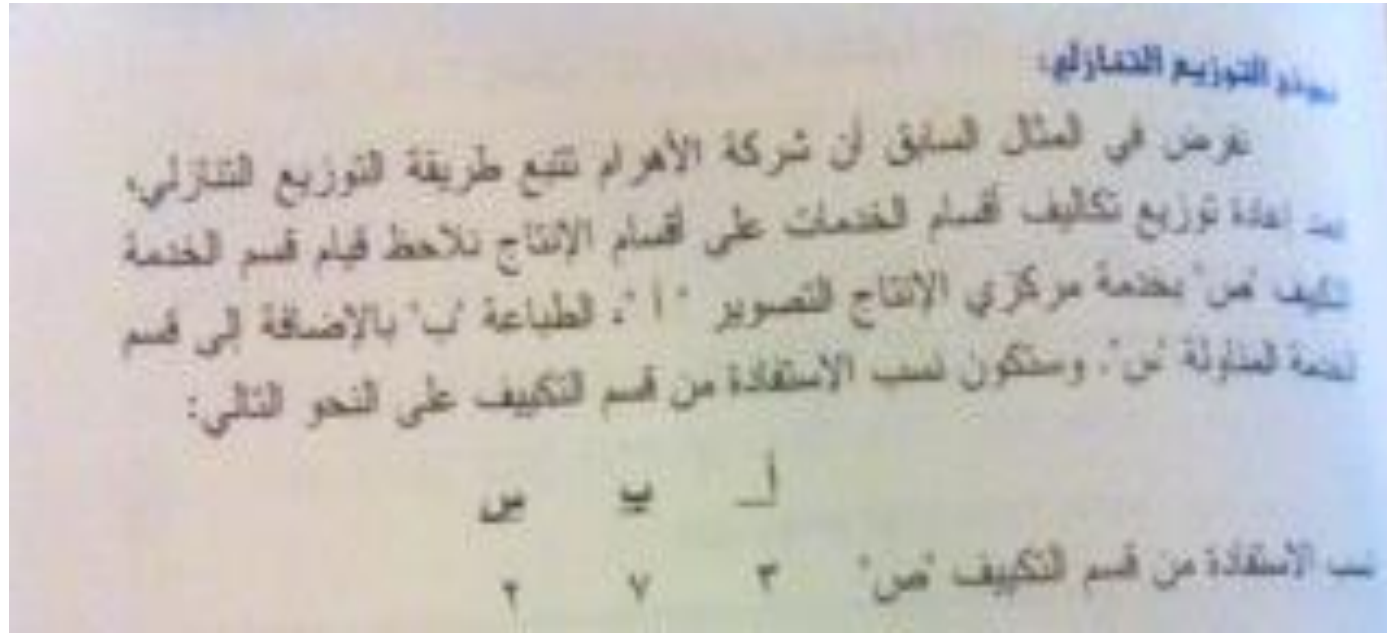 التوزيع التنازلي:
نفرض في المثال السابق أن شركة الأهرام تتبع طريقة التوزيع التنازلي،
إعادة توزيع تكاليف أقسام الخدمات على أقسام الإنتاج نلاحظ قيام قسم الخدمة
تكييف "ص" بخدمة مركزي الإنتاج التصوير " أ "، الطباعة "ب" بالإضافة إلى قسم
لخدمة المناولة "س". وستكون نسب الاستفادة من قسم التكييف على النحو التالي:
أ ب س
نسب الاستفادة من قسم التكييف "ص" ٣ ٧ ٢